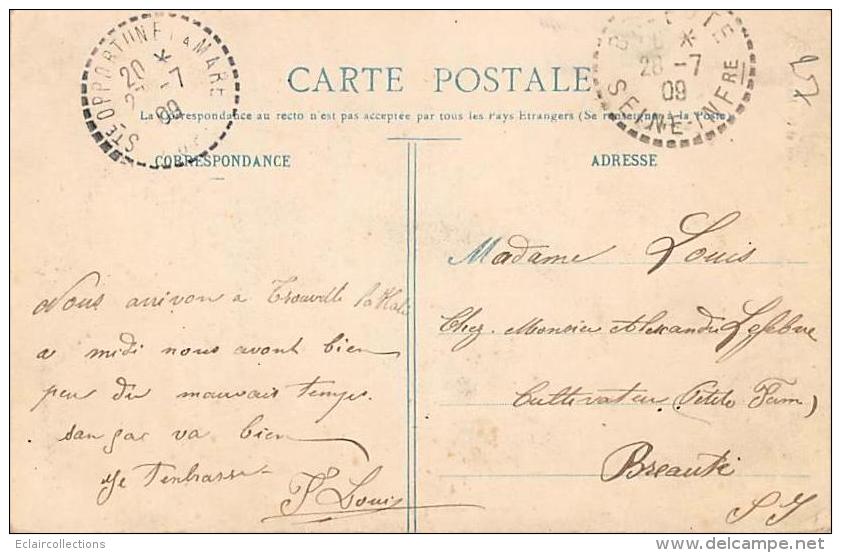 STE OPPORTUNE LA MARE
20 - 7
09
28 - 7
09
SEINE-INFRE
257
CARTE POSTALE
La Correspondance au recto n'est pas acceptée par tous les Pays Etrangers (Se renseigner à la Poste)
CORRESPONDANCE
ADRESSE
Madame Louis
Chez Monsieu Alexandre Lefebvre
Cultivateur (Petite Fam)
Breauté
S I
Nous arrivon a Trouville
a midi nous avont bien
peu du mauvais temps.
san gac va bien
Je t'enbrasse
Louis
Eclaircollections
delcampe.net